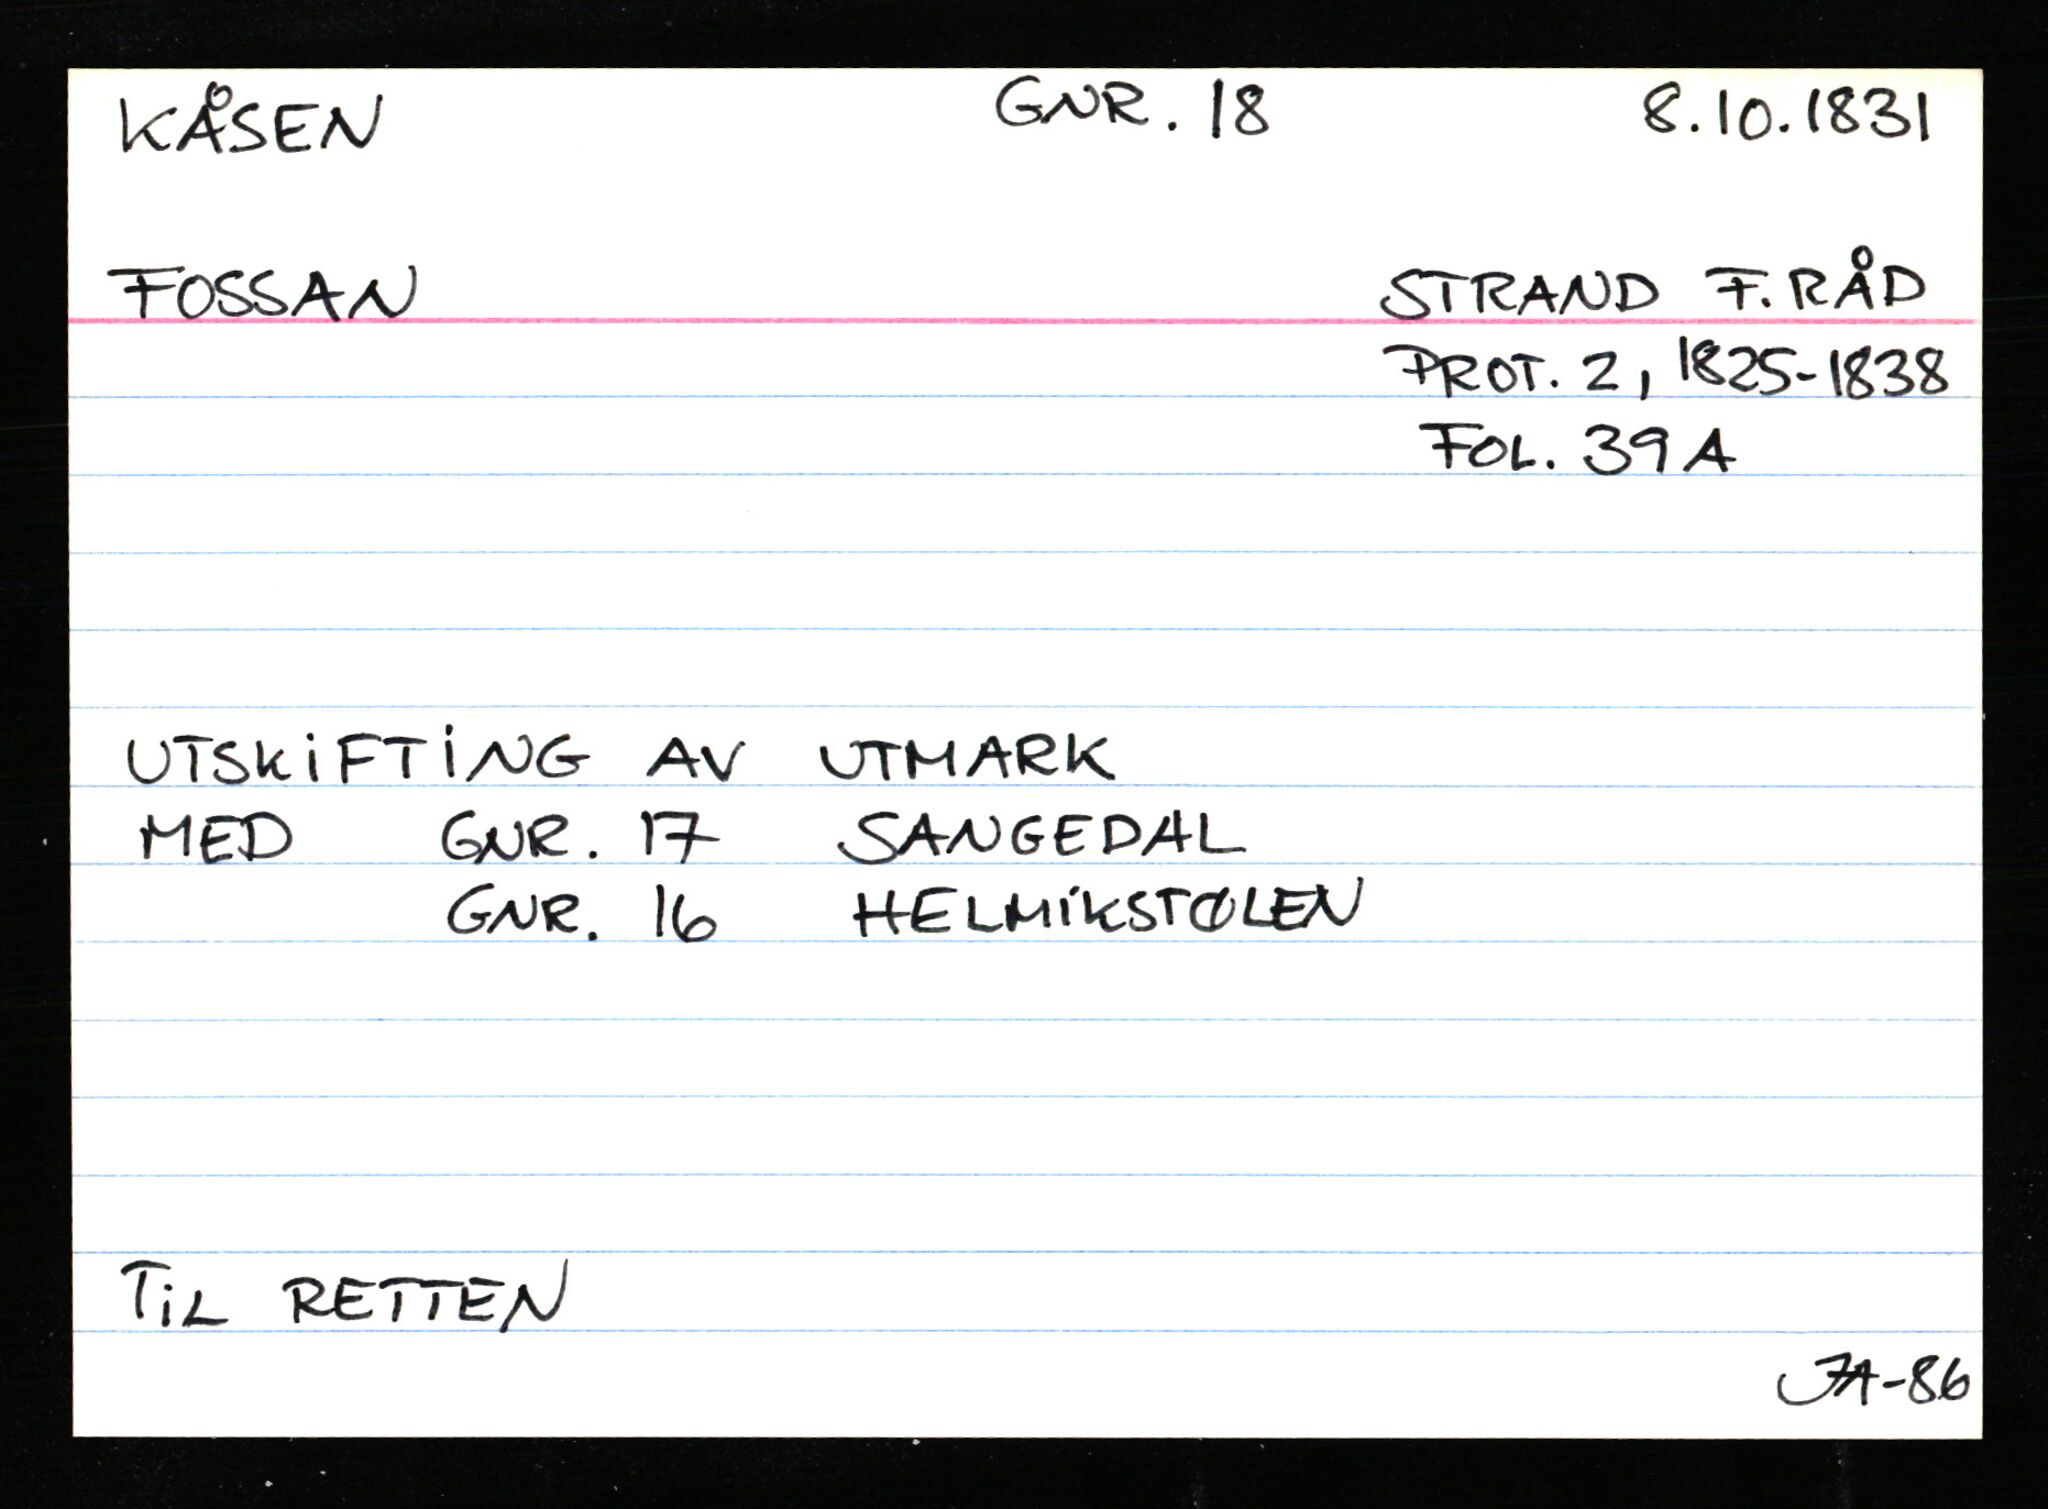 KÅSEN GNR. 18 8.10.1831
FOSSAN STRAND F.RÅD
PROT. 2, 1825-1838
FOL. 39A
UTSKIFTING AV UTMARK
MED GNR. 17 SANGEDAL
GNR. 16 HELMIKSTØLEN
TIL RETTEN
JA-86